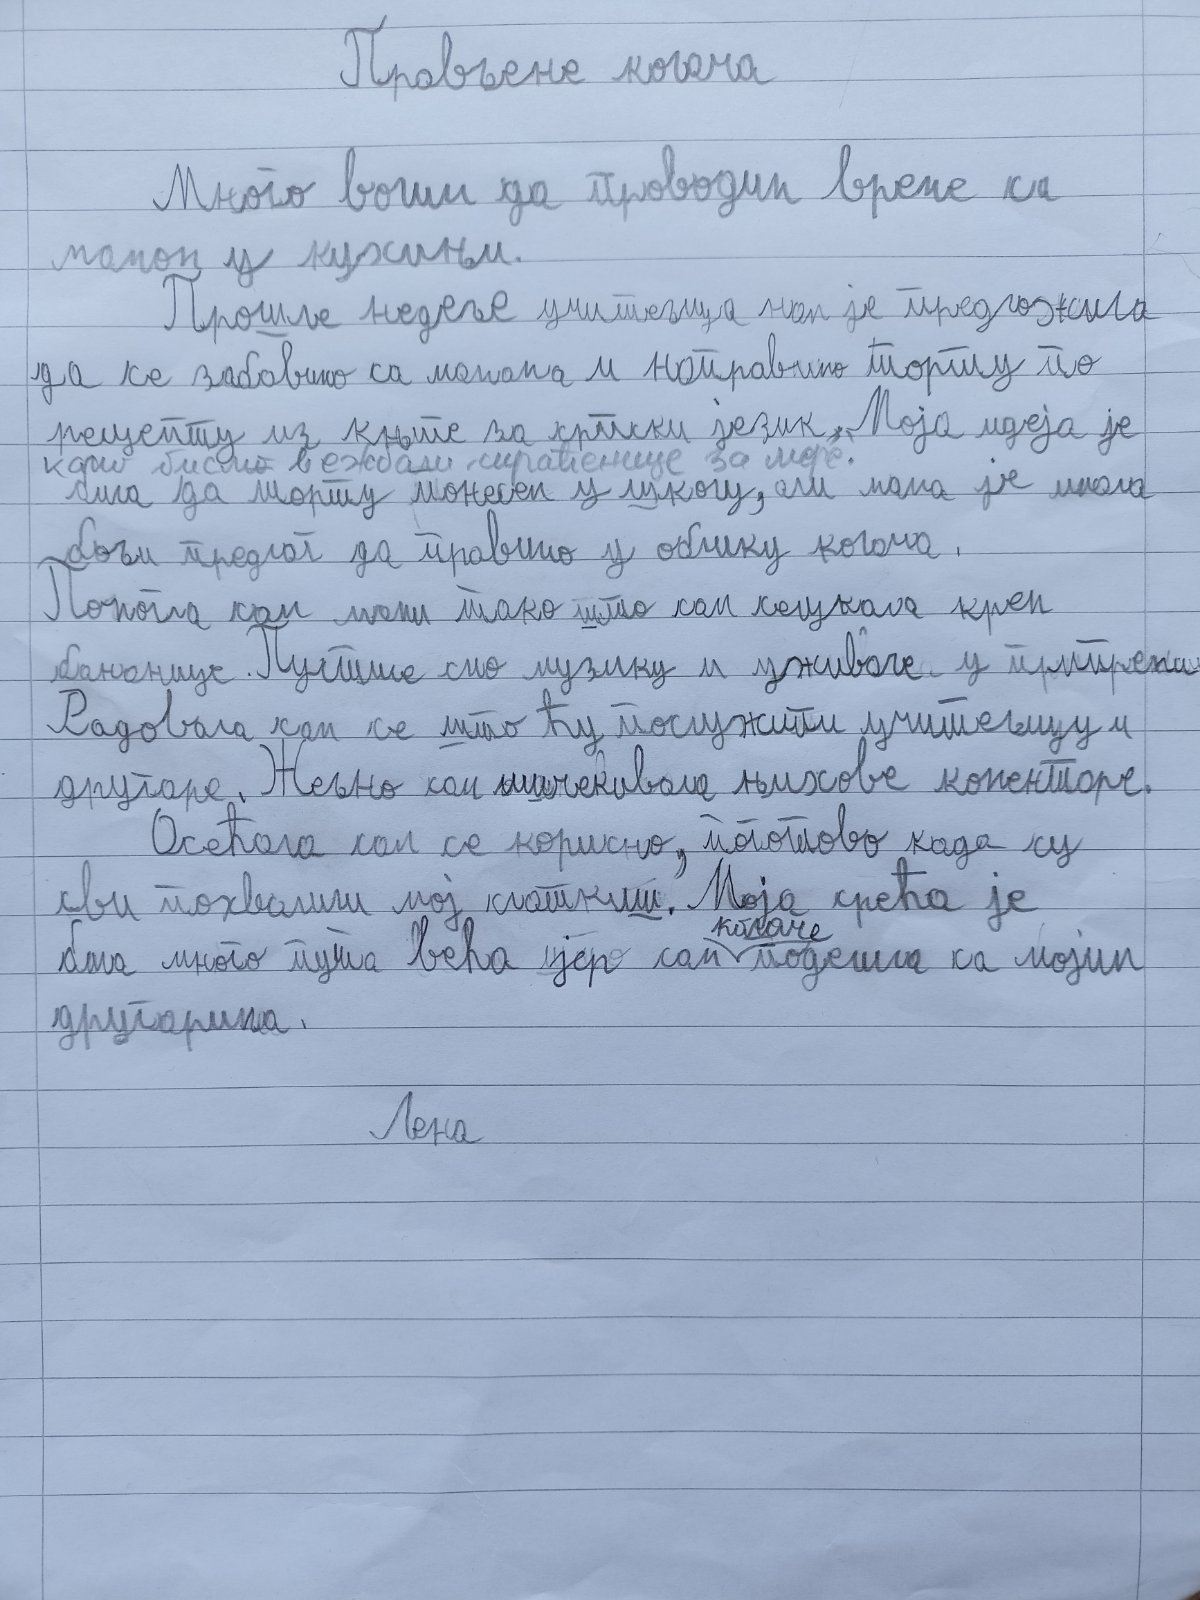 Прављене колача
Много волим да проводим време са
мамом у кухињи.
Прошле недеље учитељица нам је предложила
да се забавимо са мамама и направимо торту по
рецепту из књиге за српски језик, Моја идеја је
како бисмо вежбали скраћенице за мере.
била да торту понесем у школу, али мама је имала
бољи предлог да правимо у облику колача.
Помогла сам мами тако што сам сецкала крем
бананице. Пустиле смо музику и уживале у припреми
Радовала сам се што ћу послужити учитељицу и
другаре. Жељно сам ишчекивала њихове коментаре.
Осећала сам се корисно, поготово када су
сви похвалили мој слаткиш. Моја срећа је
колаче
била много пута већа јер сам поделила са мојим
другарима.
Лена